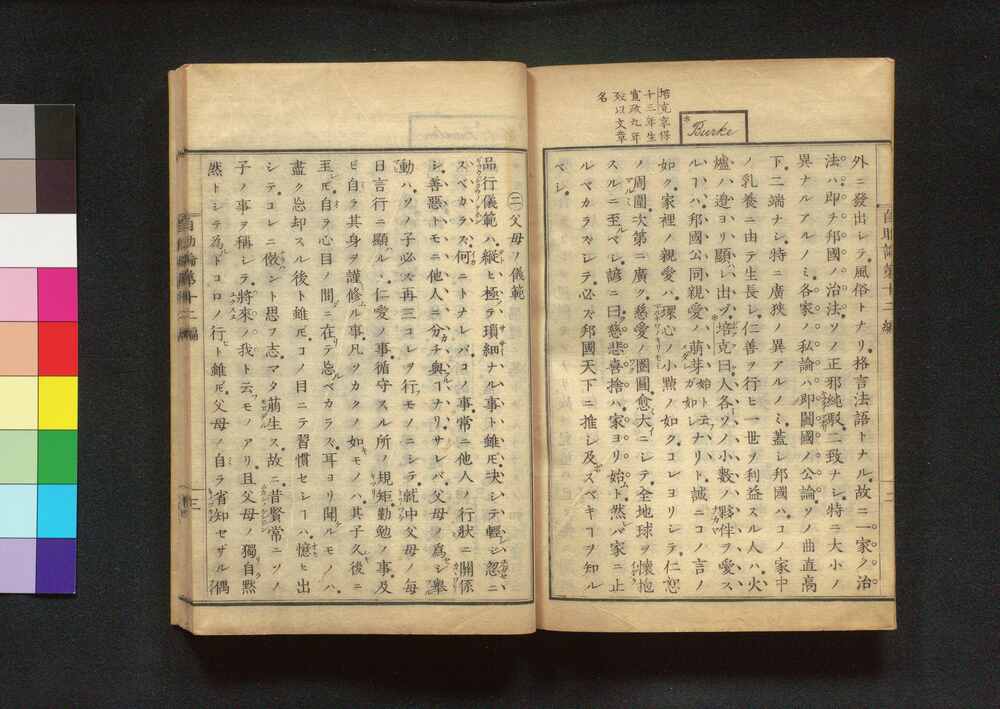 培克享得
十三年生
寛政九年
歿以文章
名
Burke
外ニ發出シテ風俗トナリ格言法語トナル故ニ一家ク治
法ハ即チ邦國ノ治法ソノ正邪純駁二致ナシ特ニ大小ノ
異ナルアルノミ各家ノ私論ハ即闔國ノ公論ソノ曲直高
下二端ナシ特ニ廣狹ノ異アルノミ蓋シ邦國ハコノ家中
ノ乳養ニ由テ生長シ仁善ヲ行ヒ一世ヲ利益スル人ハ火
爐ハ邊ヨリ顯レ出ヅ培克曰人各ソノ小數ノ夥伴ヲ愛ス
ルヿハ邦國公同親愛ノ萠芽ガ如シナリト誠ニコノ言ノ
如ク家裡ノ親愛ハ環心ノ小點ノ如クコレヨリシテ仁恕
ノ周圍次第ニ廣ク慈愛ノ圈圓愈大ニシテ全地球ヲ懷抱
スルニ至ルベシ諺ニ曰慈悲喜捨ハ家ヨリ始ト然バ家ニ止
ルマカラズシテ必ズ邦國天下ニ推シ及スベキヿヲ知ル
ベシ
自助論第十二編
二
㈡父母ノ儀範
品行儀範ハ縱ヒ極テ瑣細ナル事ト雖𪜈決シテ輕シ忽ニ
スベカラズ何ニトナレバコノ事常ニ他人ノ行狀ニ關係
シ善惡トモニ他人ニ分チ與ヿナリサレバ父母ノ爲シ擧
動ハソノ子必ス再三コレヲ行モノニシテ就中父母ノ毎
日言行ニ顯ハル仁愛ノ事循守スル所ノ規矩勤勉ノ事及
ヒ自ラ其身ヲ謹修ル事凡ソカクノ如モノハ其子久後ニ
至𪜈自ラ心目ノ間ニ在テ忘ベカラズ耳ヨリ聞ルモノハ
盡ク忘却スル後ト雖𪜈コノ目ニテ習慣セシヿハ憶ヒ出
シテコレニ傚ント思フ志マタ萠生ス故ニ昔賢常ニソノ
子ノ事ヲ稱シテ將來ノ我ト云フモノアリ且父母ノ獨自黙
然トシテ爲トコロノ行ト雖𪜈父母ノ自ラ省知セザル偶
自助論第十二編
三